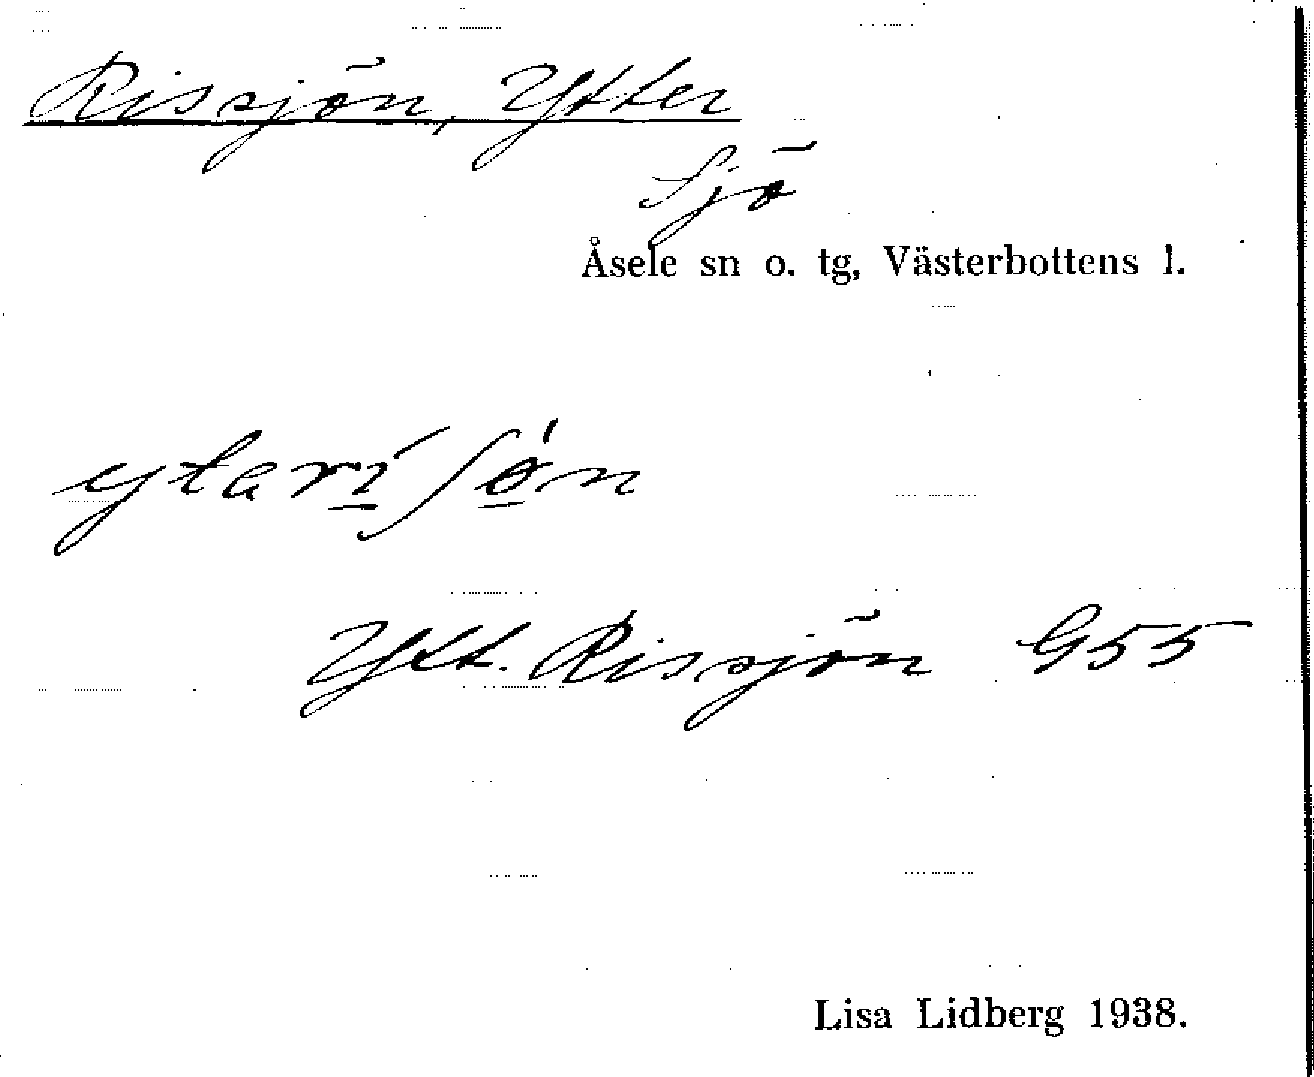 Rissjön, Ytter
Sjö
Åsele sn o. tg, Västerbottens l.
ytari̲ʃö̲́n
Ytt. Rissjön G55
Lisa Lidberg 1938.